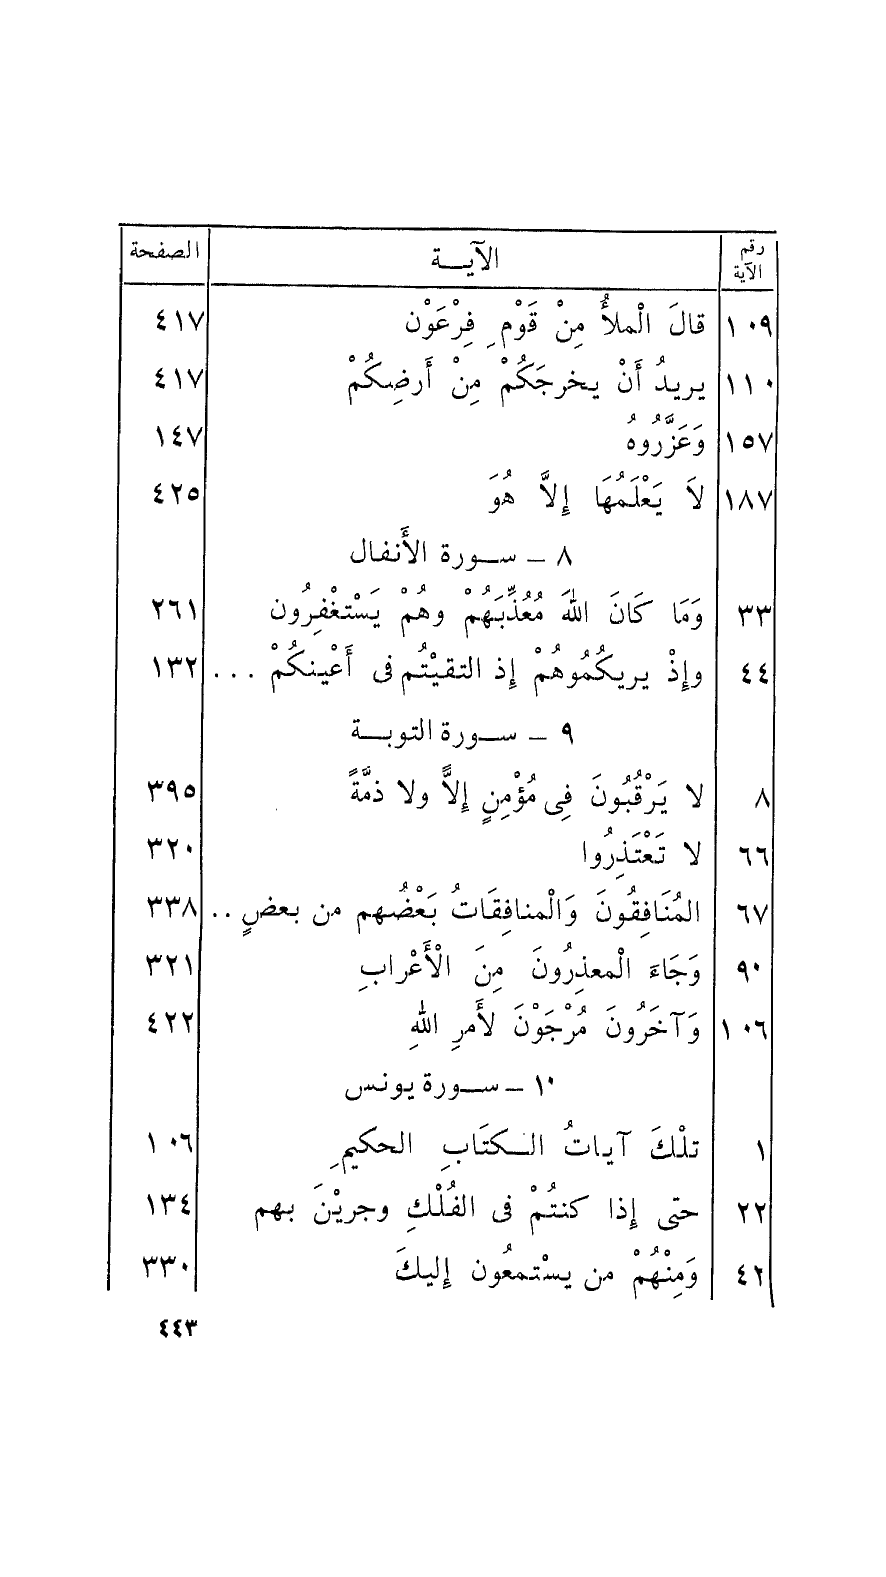 رقم الآية الآيــة الصفحة
١٠٩ قالَ الْملأُ مِنْ قَوْمِ فِرْعَوْن ٤١٧
١١٠ يريدُ أَنْ يخرجَكُمْ مِنْ أَرضِكُمْ ٤١٧
١٥٧ وَعَزَّرُوهُ ١٤٧
١٨٧ لاَ يَعْلَمُهَا إِلاَّ هُوَ ٤٢٥
٨ – ســورة الأَنفال
٣٣ وَمَا كَانَ اللهُ مُعُذِّبَهُمْ وهُمْ يَسْتغْفِرُون ٢٦١
٤٤ وإِذْ يريكُمُوهُمْ إِذ التقيْتُم فى أَعْينكُمْ ... ١٣٢
٩ – ســورة التوبــة
٨ لا يَرْقُبُونَ فِى مُؤْمِنٍ إِلاًّ ولا ذمَّةً ٣٩٥
٦٦ لا تَعْتَذِرُوا ٣٢٠
٦٧ المُنَافِقُونَ وَالْمنافِقَاتُ بَعْضُهم من بعضٍ .. ٣٣٨
٩٠ وَجَاءَ الْمعذِرُونَ مِنَ الْأَعْرابِ ٣٢١
١٠٦ وَآخَرُونَ مُرْجَوْنَ لأَمرِ اللهِ ٤٢٢
١٠ – ســورة يونس
١ تلْكَ آياتُ الـكتَابِ الحكيمِ ١٠٦
٢٢ حتى إِذا كنتُمْ فى الفُلْكِ وجريْنَ بهم ١٣٤
٤٢ وَمِنْهُمْ من يسْتمعُون إِليكَ ٣٣٠
٤٤٣